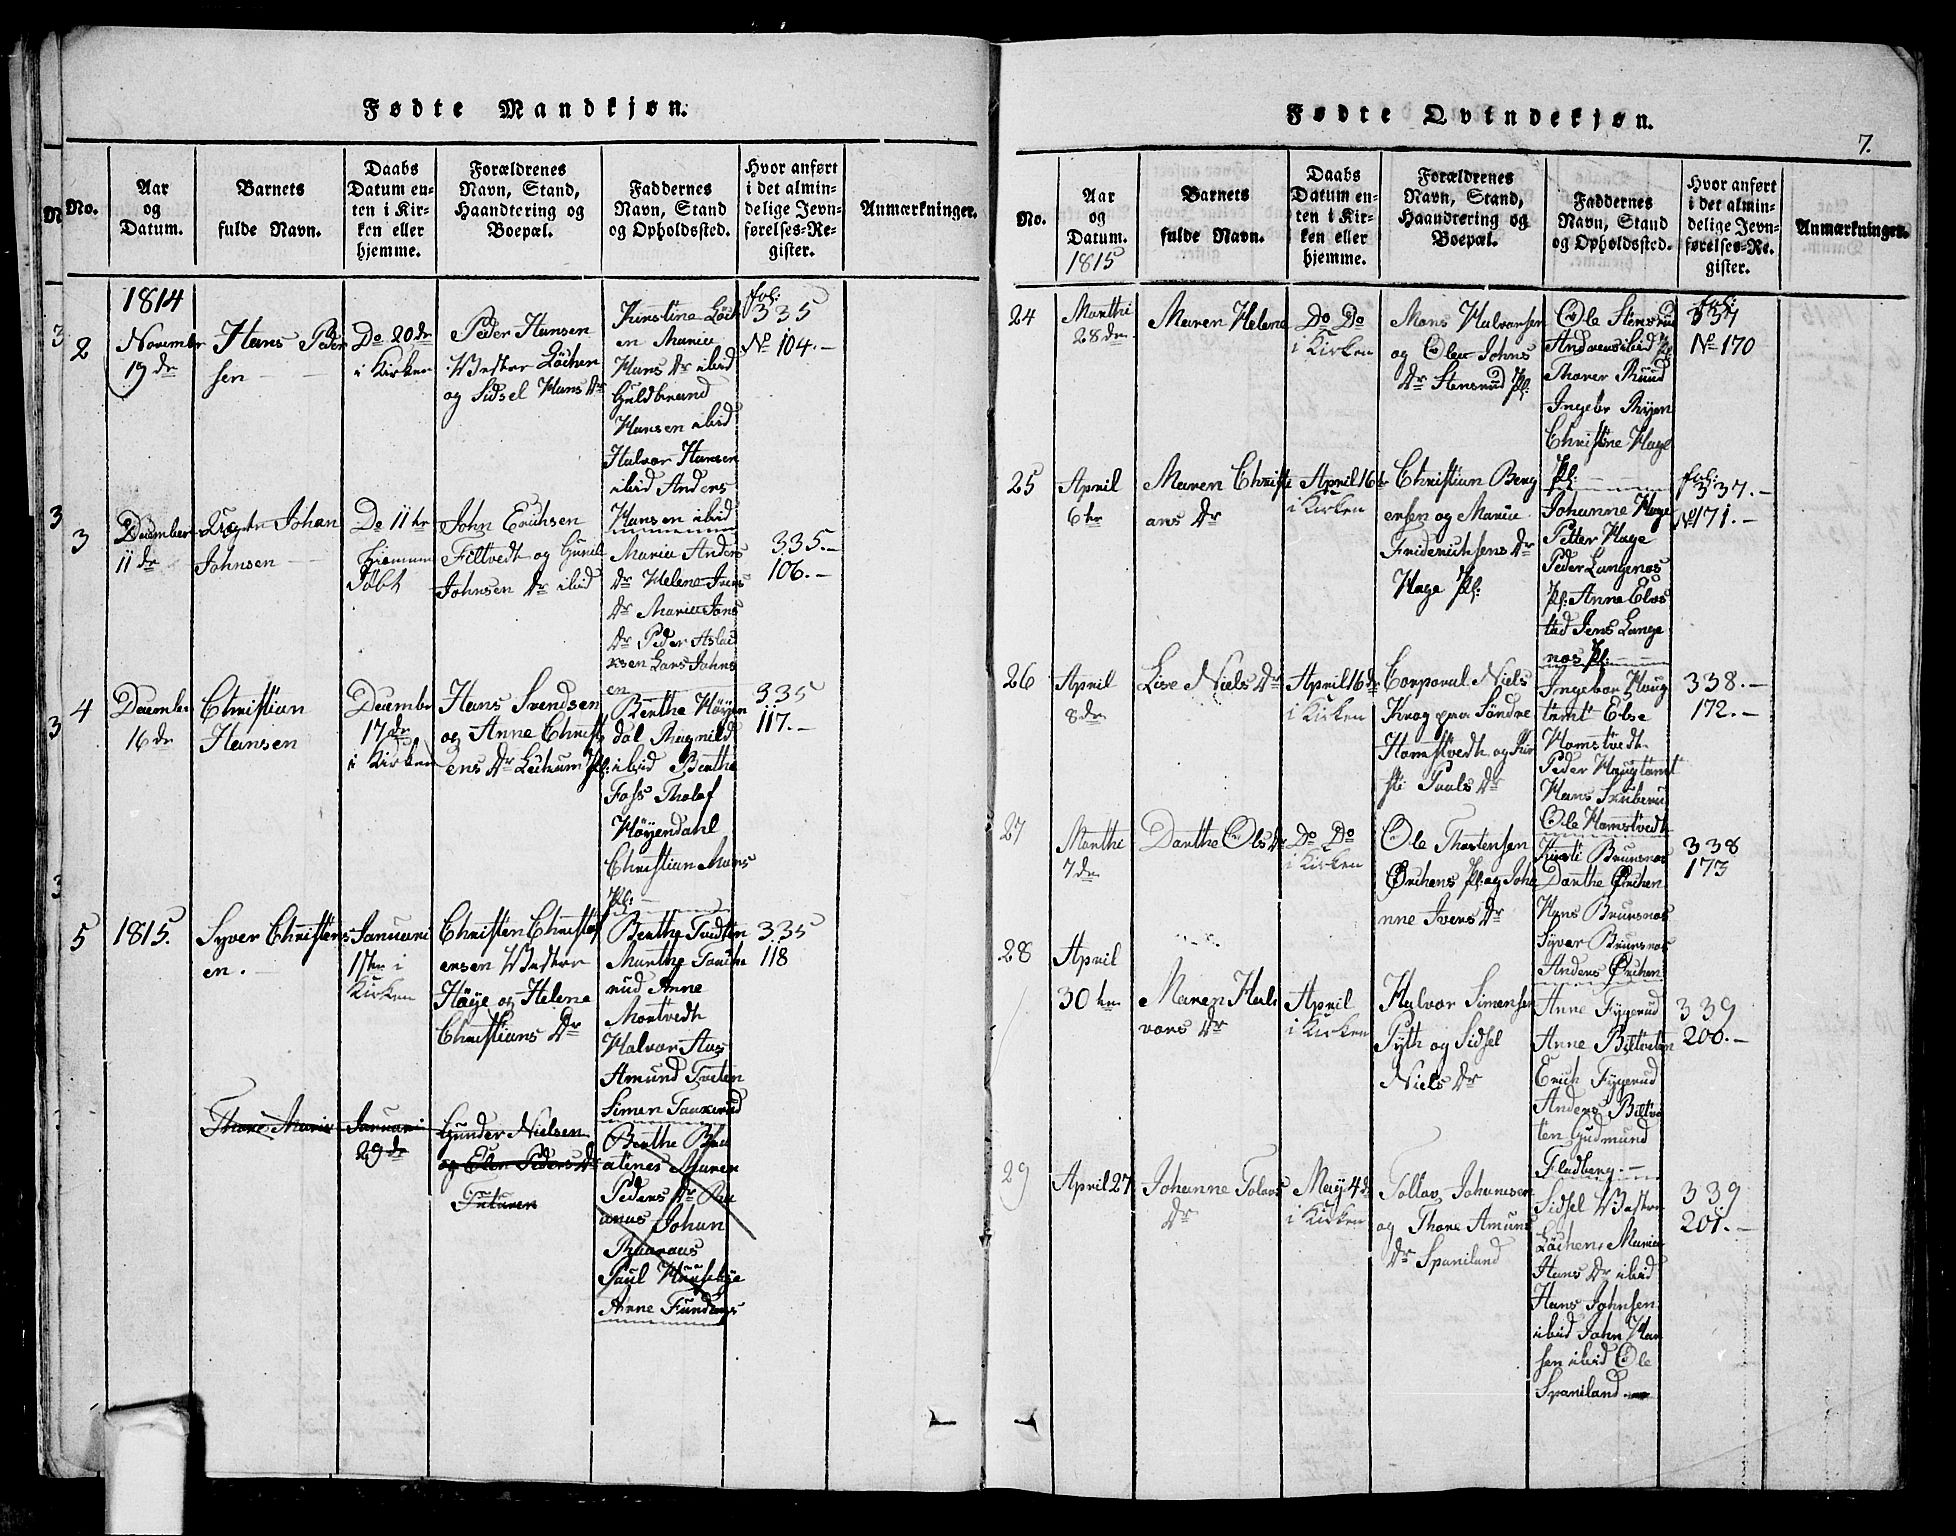 Fødte Mandkjøn.
No.
Aar
og
Datum.
Barnets
fulde Navn.
Daabs
Datum en-
ten i Kir-
ken eller
hjemme.
Forældrenes
Navn, Stand,
Haandtering og
Boepæl.
Faddernes
Navn, Stand
og Opholdssted.
Hvor anført
i det almin-
delige Jevn-
førelses-Re-
gister.
Anmærkninger.
2
1814
Novembr
19de
Hans Peder
sen
Do 20de
i Kirken
Peder Hansen
Vestre Löchen
og Sidsel Hans Dr
Kirstine Löch
en Maria
Hans Dr ibid
Guldbrand
Hansen ibid
Halvor Hansen
ibid Anders
Hansen ibid
fol:
335
No 104.-
3
December
11de
Johan
Johnsen
Do 11te
hiemme
Døbt
John Erichsen
Filtvedt og Gunil
Johnsen Dr ibid
Maria Anders
Dr Helene Ivers
Dr Maria Jans
Dr Peder Aslac
ksen Lars Johns
en
335.-
106.-
4
Decembr
16de
Christian
Hansen
Decembr
17de
i Kirken
Hans Svendsen
og Anne Christ
ens Dr Lechum Pl:
Berthe Höyen
dal Magnild
ibid Berthe
Foss Tholof
Höyendahl
Christian Moens
Pl:
335
117.-
5
1815.
Syver Christens
en.
Januari
1ste i
Kirken
Christen Christof
ersen Vestre
Höye og Helene
Christians Dr
Berthe Tvedten
Marthe Tauche
rud Anne
Mortvedt
Halvor Aas
Amund Tveten
Simen Taucherud
335
118
Thore Maria
Januari
29de
Gunder Nielsen
og Elen Peders Dr
Berthe
Maren
Peders Dr
Johan
Paul Hunsebye
Anne
Fødte Qvindekjøn.
7.
No.
Aar
og
Datum.
1815
Barnets
fulde Navn.
Daabs
Datum en-
ten i Kir-
ken eller
hjemme.
Forældrenes
Navn, Stand,
Haandtering og
Boepæl.
Faddernes
Navn, Stand
og Opholdssted.
Hvor anført
i det almin-
delige Jevn-
førelses-Re-
gister.
Anmærkninger.
24
Marthi
28de
Maren Helene
Do Do
i Kirken
Mons Halvorsen
og Olea Johns
Dr Stensrud Pl:
Ole Stensrud
Andreas ibid Pl
Maren Ruud
Ingebr Ryen
Christine Hage
Pl:
fol:
337
No 170
25
April
6te
Maren Christi
ans Dr
April 16de
i Kirken
Christian Berg
ersen og Maria
Friderichsens Dr
Hage Pl:
Johanne Hage
Petter Hage
Peder Langenæs
Pl: Anne Elvs
tad Jens Lange
næs Pl:
fol:
337.-
No 171.-
26
April
8de
Lise Niels Dr
April 16de
i Kirken
Corporal Niels
Krog paa Söndre
Homstvedt og Kir
sti Paals Dr
Ingebor Haug
tomt Else
Homstvedt
Peder Haugtomt
Hans Skuberu
Ole Homstvedt
338.-
172.-
27
Marthi
7de
Dorthe Ols Dr
Do Do
i Kirken
Ole Thostensen
Örchens Pl: og Joha
nne Ivers Dr
Kirsti Brunsnæs
Dorthe Örchen
Hans Brunsnæs
Syver Brunsnæs
Anders Örchen
338
173
28
April
30te
Maren Hal
vors Dr
April
i Kirken
Halvor Simensen
Fyth og Sidsel
Niels Dr
Anne Fygerud
Anne Biltveten
Erich Fygerud
Anders Biltve
ten Gudmund
Fladberg.-
339
200.-
29
April 27
Johanne Tolovs
Dr
Maj 4de
i Kirken
Tollov Johannsen
og Thore Amuns
Dr Spaniland
Sidsel Vestre
Löchen, Maria
Hans Dr ibid
Hans Johnsen
ibid John Han
sen ibid Ole
Spaniland
339
201.-